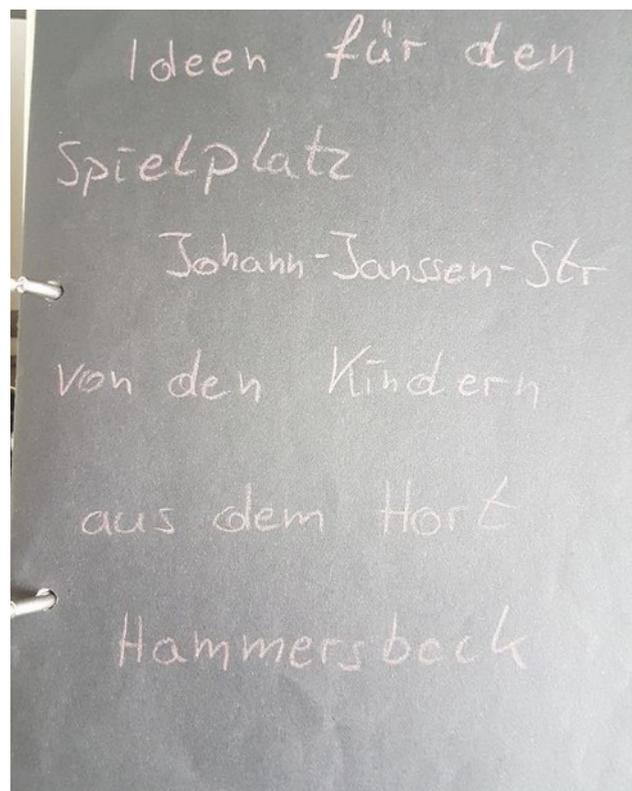 Ideen für den
Spielplatz
Johann-Janssen-Str
von den Kindern
aus dem Hort
Hammersbeck